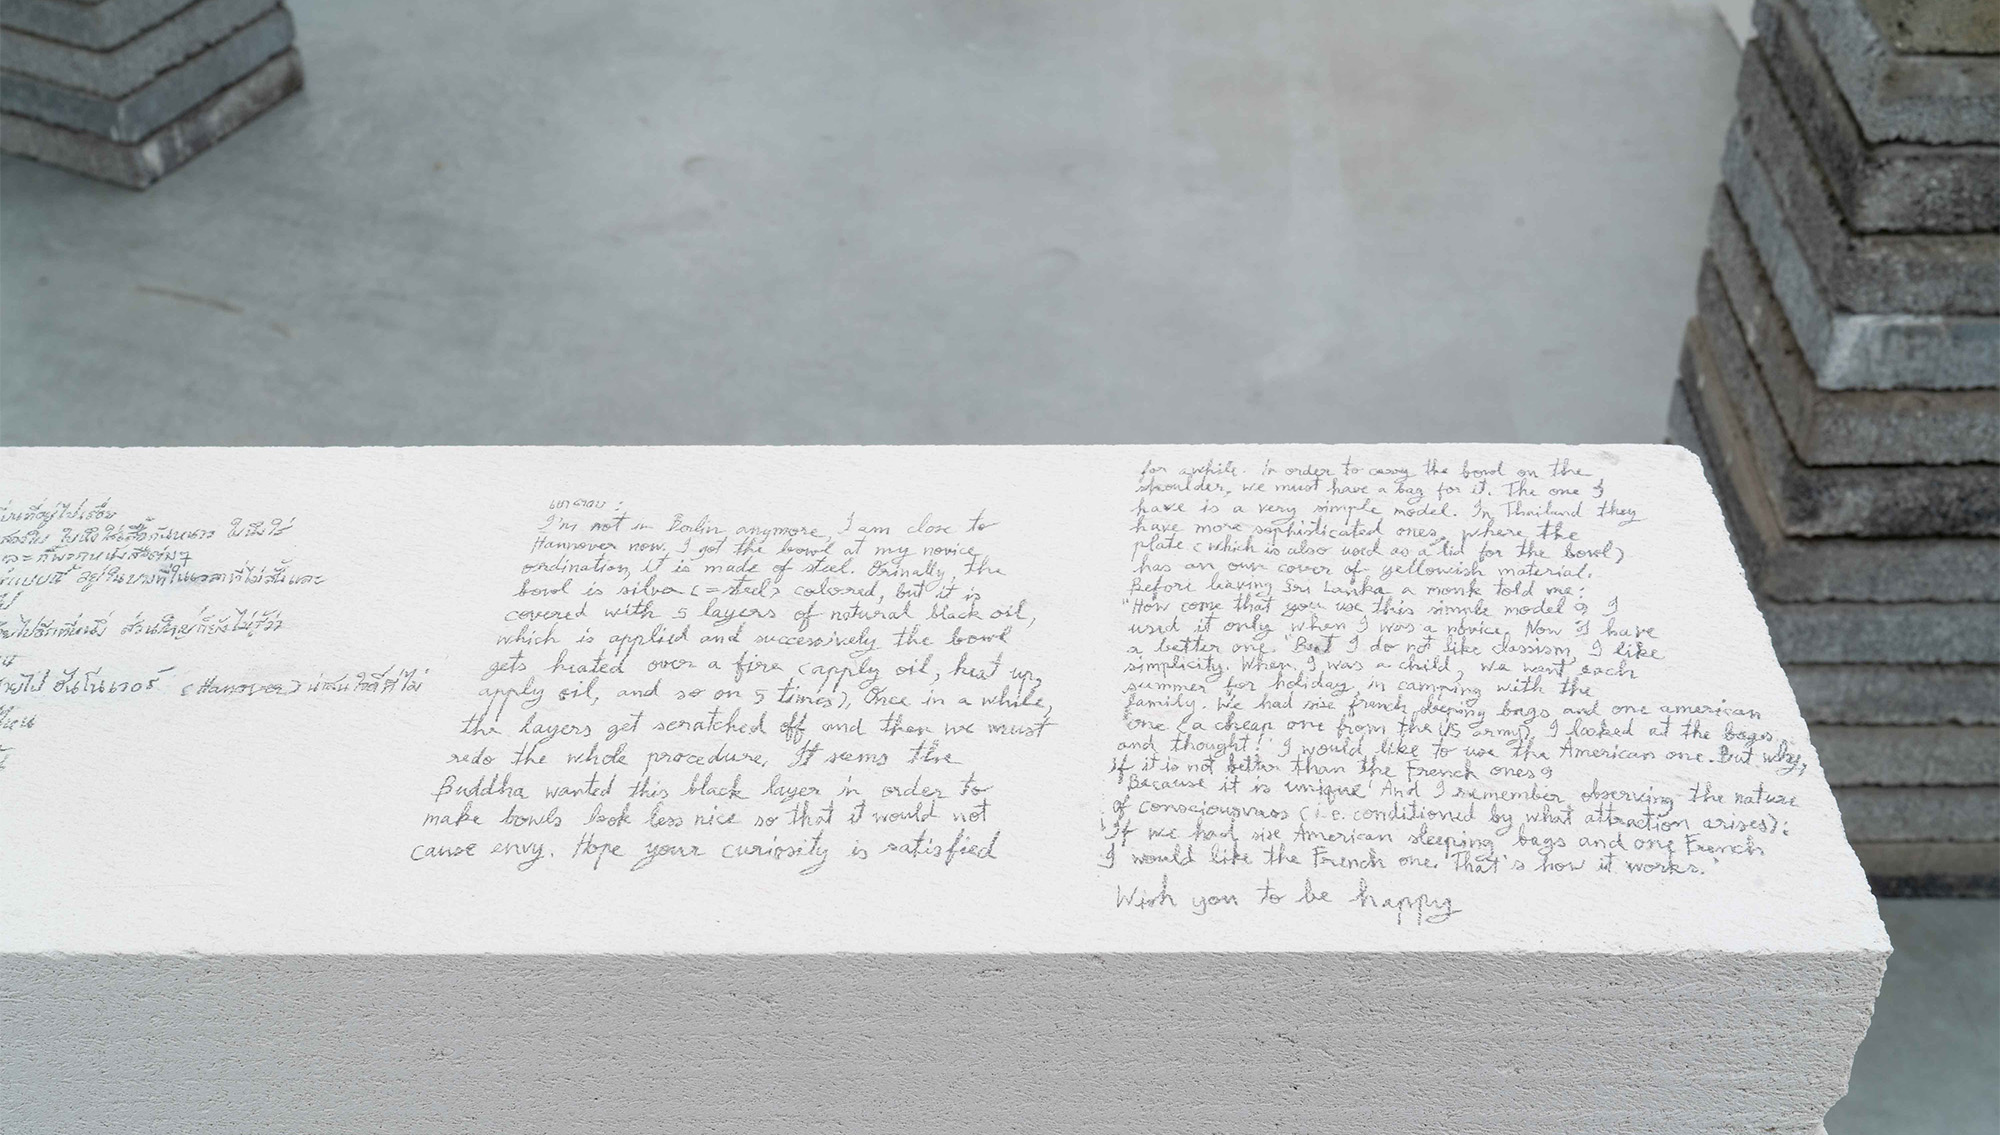 สองใบ ใบนึงใช่เสื้อกันหนาว ใบนึงใช่
(Hanover) น่าสนใจดีที่ไม่
I'm not in Berlin anymore, I am close to
Hannover now. I got the bowl at my novice
ordination, it is made of steel. Orinally, the
bowl is silver (=steel) colored, but it is
covered with 5 layers of natural black oil,
which is applied and successively the bowl
gets heated over a fire (apply oil, heat up,
apply oil, and so on 5 times). Once in a while,
the layers get scratched off and then we must
redo the whole procedure. It seems the
Buddha wanted this black layer in order to
make bowls look less nice so that it would not
cause envy. Hope your curiosity is satisfied
for awhile. In order to carry the bowl on the
shoulder, we must have a bag for it. The one I
have is a very simple model. In Thailand they
have more sophisticated ones, where the
plate (which is also used as a lid for the bowl)
has an own cover of yellowish material.
Before leaving Sri Lanka a monk told me:
"How come that you use this simple model? I
used it only when I was a novice. Now I have
a better one." But I do not like classism, I like
simplicity. When I was a child, we went each
summer for holiday in camping with the
family. We had six french sleeping bags and one american
one (a cheap one from the US army). I looked at the bags
and thought: 'I would like to use the American one. But why,
if it is not better than the French ones?
Because it is unique' And I remember observing the nature
of consciousness (i.e. conditioned by what attraction arises):
'If we had six American sleeping bags and one French
I would like the French one. That's how it works.'
Wish you to be happy